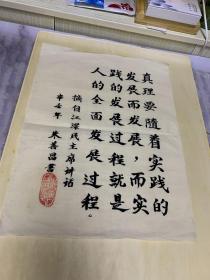 真理要随着实践的
发展而发展，而实
践的发展过程就是
人的全面发展过程。
摘自江泽民主席讲话
辛巳年 朱善昌书